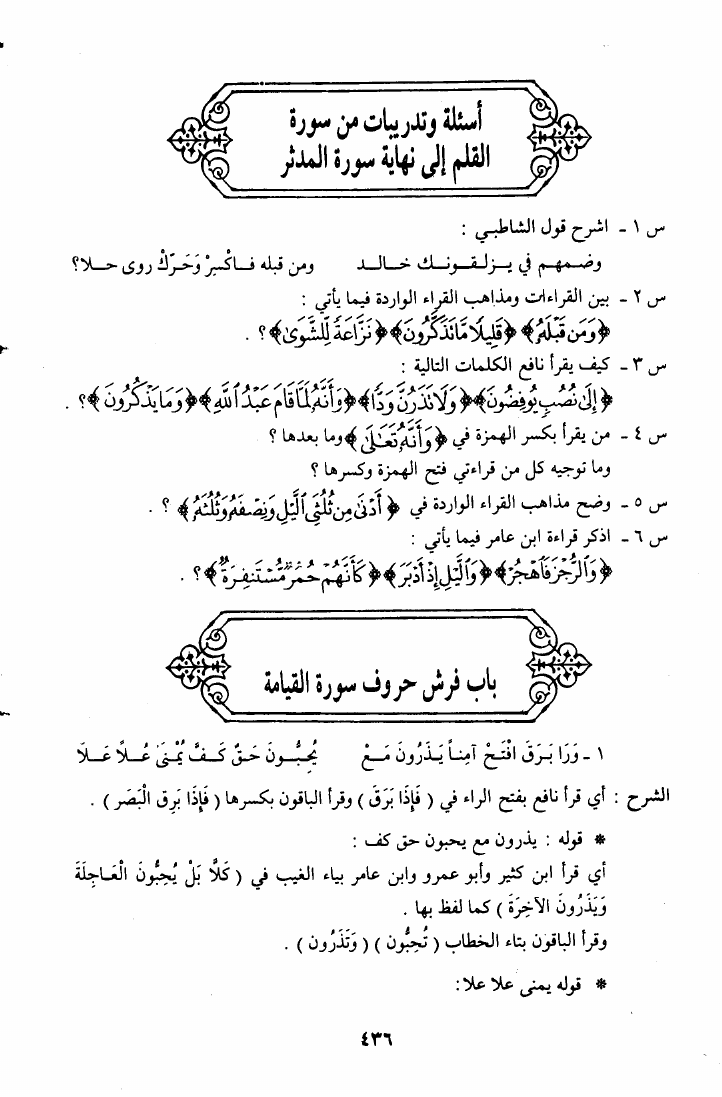 أسئلة وتدريبات من سورة
القلم إلى نهاية سورة المدثر
س ١ - اشرح قول الشاطبي :
وضمهم في يزلقونك خالد ومن قبله فاكْسِرْ وَحَرِّكْ روى حلا؟
س ٢ - بين القراءات ومذاهب القراء الواردة فيما يأتي :
﴿وَمَن قَبْلَهُ﴾ ﴿قَلِيلًا مَّا تَذَكَّرُونَ﴾ ﴿نَزَّاعَةً لِّلشَّوَىٰ﴾ ؟ .
س ٣ - كيف يقرأ نافع الكلمات التالية :
﴿إِلَىٰ نُصُبٍ يُوفِضُونَ﴾ ﴿وَلَا تَذَرُنَّ وَدًّا﴾ ﴿وَأَنَّهُ لَمَّا قَامَ عَبْدُ ٱللَّهِ﴾ ﴿وَمَا يَذْكُرُونَ﴾ ؟ .
س ٤ - من يقرأ بكسر الهمزة في ﴿وَأَنَّهُ تَعَٰلَىٰ﴾ وما بعدها ؟
وما توجيه كل من قراءتي فتح الهمزة وكسرها ؟
س ٥ - وضح مذاهب القراء الواردة في ﴿أَدْنَىٰ مِن ثُلُثَىِ ٱلَّيْلِ وَنِصْفَهُ وَثُلُثَهُ﴾ ؟ .
س ٦ - اذكر قراءة ابن عامر فيما يأتي :
﴿وَٱلرُّجْزَ فَٱهْجُرْ﴾ ﴿وَٱلَّيْلِ إِذْ أَدْبَرَ﴾ ﴿كَأَنَّهُمْ حُمُرٌ مُّسْتَنفِرَةٌ﴾ ؟ .
باب فرش حروف سورة القيامة
١ - وَرَا بَرَقَ افْتَحْ آمِناً يَذَرُونَ مَعْ يُحِبُّونَ حَقٌّ كَفَّ يُمْنَىٰ عُلاً عَلَا
الشرح : أي قرأ نافع بفتح الراء في ( فَإِذَا بَرَقَ ) وقرأ الباقون بكسرها ( فَإِذَا بَرِق الْبَصَر ) .
* قوله : يذرون مع يحبون حق كف :
أي قرأ ابن كثير وأبو عمرو وابن عامر بياء الغيب في ( كَلَّا بَلْ يُحِبُّونَ الْعَاجِلَةَ
وَيَذَرُونَ الآخِرَةَ ) كما لفظ بها .
وقرأ الباقون بتاء الخطاب ( تُحِبُّون ) ( وَتَذَرُون ) .
* قوله يمنى علا علا:
٤٣٦